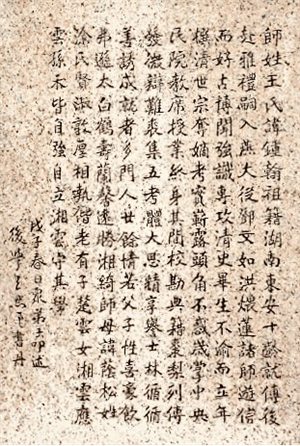 師姓王氏諱鍾翰祖籍湖南東安十齡就傅後
赴雅禮嗣入燕大從鄧文如洪煨蓮諸師遊信
而好古博聞強識專攻清史畢生不渝而立年
撰清世宗奪嫡考實嶄露頭角不惑歲掌中央
民院教席授業終身其間校勘典籍棗梨列傳
發微辯難裒集五考體大思精享譽士林循循
善誘成就者多門人廿餘情若父子性喜豪飲
弗遜太白鶴壽蘭馨遠勝湘綺師母諱蔭松姓
涂氏賢淑敦厚相執偕老有子楚雲女湘雲應
雲孫禾皆自強自立湘雲守其學
戊子春日眾弟子叩述
後學書丹